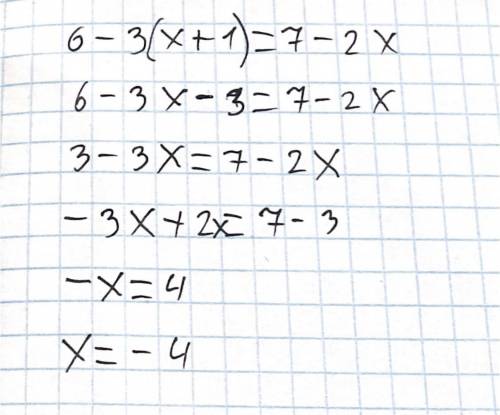 6 - 3(x + 1) = 7 - 2x
6 - 3x - 3 = 7 - 2x
3 - 3x = 7 - 2x
- 3x + 2x = 7 - 3
- x = 4
x = - 4